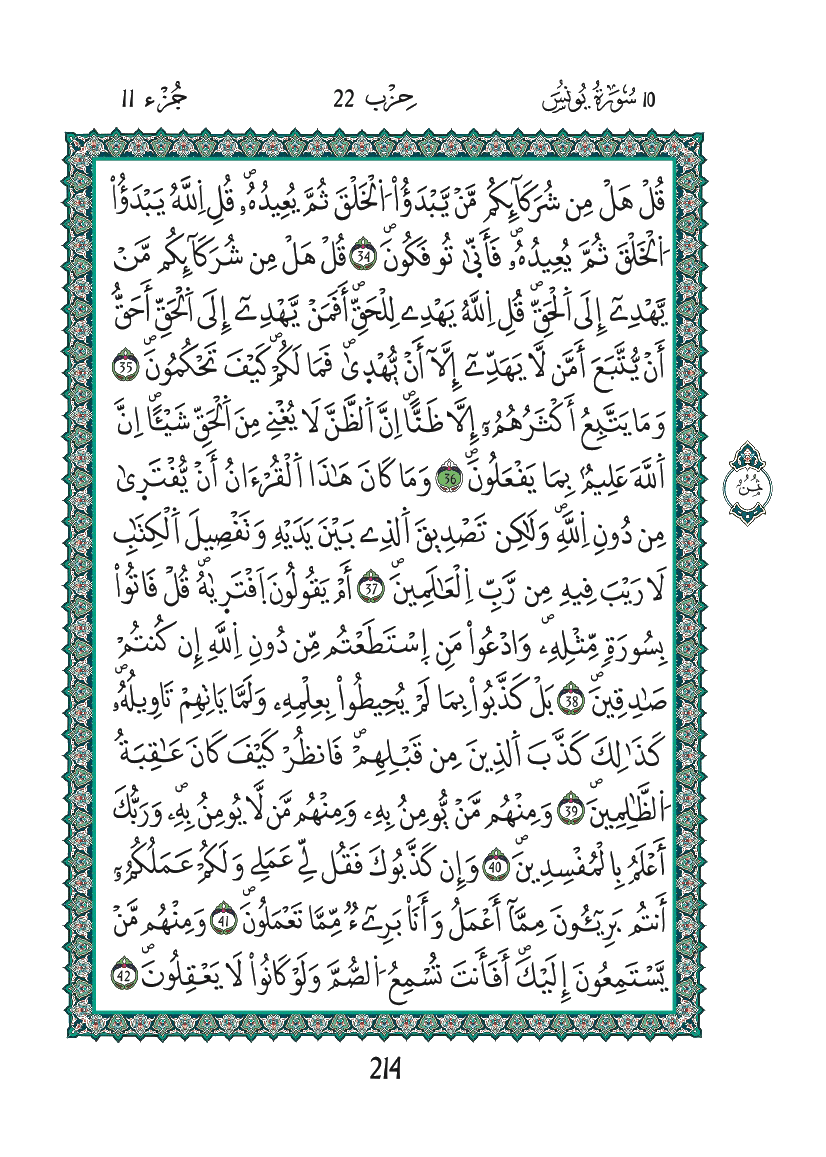 10 سُورَةُ يُونُسَ
حِزْب 22
جُزْء 11
قُلْ هَلْ مِن شُرَكَآئِكُم مَّنْ يَّبْدَؤُاْ اُ۬لْخَلْقَ ثُمَّ يُعِيدُهُۥۖ قُلِ اِ۬للَّهُ يَبْدَؤُاْ
اُ۬لْخَلْقَ ثُمَّ يُعِيدُهُۥۖ فَأَنّ۪يٰ تُوفَكُونَۖ 34 قُلْ هَلْ مِن شُرَكَآئِكُم مَّنْ
يَّهْدِےٓ إِلَى اَ۬لْحَقِّۖ قُلِ اِ۬للَّهُ يَهْدِے لِلْحَقِّۖ أَفَمَنْ يَّهْدِےٓ إِلَى اَ۬لْحَقِّ أَحَقُّ
أَنْ يُّتَّبَعَ أَمَّن لَّا يَهَدِّےٓ إِلَّآ أَنْ يُّهْد۪يٰۖ فَمَا لَكُمْۖ كَيْفَ تَحْكُمُونَۖ 35
وَمَا يَتَّبِعُ أَكْثَرُهُمُۥٓ إِلَّا ظَنّاًۖ اِنَّ اَ۬لظَّنَّ لَا يُغْنِے مِنَ اَ۬لْحَقِّ شَيْـٔاًۖ اِنَّ
اَ۬للَّهَ عَلِيمُۢ بِمَا يَفْعَلُونَۖ 36 وَمَا كَانَ هَٰذَا اَ۬لْقُرْءَانُ أَنْ يُّفْتَر۪يٰ
مِن دُونِ اِ۬للَّهِۖ وَلَٰكِن تَصْدِيقَ اَ۬لذِے بَيْنَ يَدَيْهِ وَتَفْصِيلَ اَ۬لْكِتَٰبِ
لَا رَيْبَ فِيهِ مِن رَّبِّ اِ۬لْعَٰلَمِينَۖ 37 أَمْ يَقُولُونَ اَ۪فْتَر۪يٰهُۖ قُلْ فَاتُواْ
بِسُورَةٖ مِّثْلِهِۦ وَادْعُواْ مَنِ اِ۪سْتَطَعْتُم مِّن دُونِ اِ۬للَّهِ إِن كُنتُمْ
صَٰدِقِينَۖ 38 بَلْ كَذَّبُواْ بِمَا لَمْ يُحِيطُواْ بِعِلْمِهِۦ وَلَمَّا يَاتِهِمْ تَاوِيلُهُۥۖ
كَذَٰلِكَ كَذَّبَ اَ۬لذِينَ مِن قَبْلِهِمْۖ فَانظُرْ كَيْفَ كَانَ عَٰقِبَةُ
اُ۬لظَّٰلِمِينَۖ 39 وَمِنْهُم مَّنْ يُّومِنُ بِهِۦ وَمِنْهُم مَّن لَّا يُومِنُ بِهِۦۖ وَرَبُّكَ
أَعْلَمُ بِالْمُفْسِدِينَۖ 40 وَإِن كَذَّبُوكَ فَقُل لِّے عَمَلِے وَلَكُمْ عَمَلُكُمُۥٓ
أَنتُم بَرِيٓـُٔونَ مِمَّآ أَعْمَلُ وَأَنَا۠ بَرِےٓءٞ مِّمَّا تَعْمَلُونَۖ 41 وَمِنْهُم مَّنْ
يَّسْتَمِعُونَ إِلَيْكَۖ أَفَأَنتَ تُسْمِعُ اُ۬لصُّمَّ وَلَوْ كَانُواْ لَا يَعْقِلُونَۖ 42
ثُمُن
214